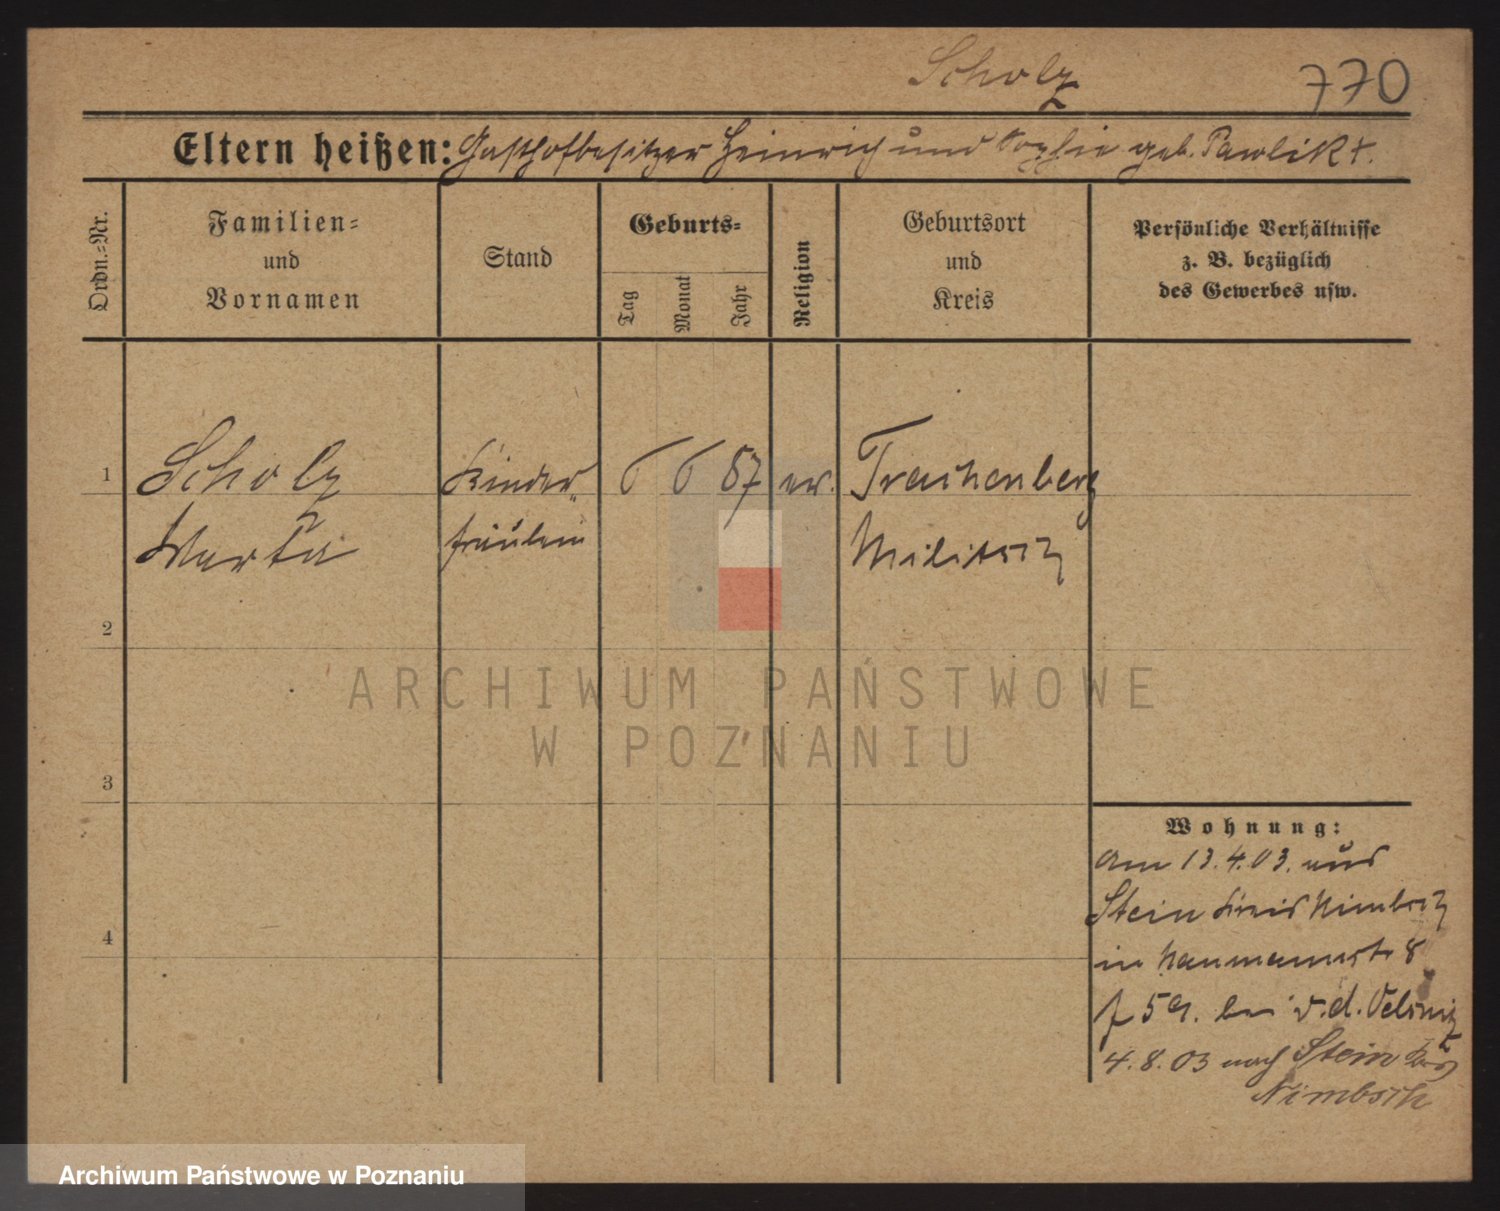 Scholz
770
Eltern heißen: Gasthofbesitzer Heinrich und Sophie geb. Pawlik +.
Ordn.-Nr.
Familien-
und
Vornamen
Stand
Geburts-
Tag
Monat
Jahr
Religion
Geburtsort
und
Kreis
Persönliche Verhältnisse
z. B. bezüglich
des Gewerbes usw.
1
Scholz
Kinder-
6 6 87 ev.
Trachenberg
Marta
fräulein
Militsch
2
ARCHIWUM PAŃSTWOWE
W POZNANIU
3
Wohnung:
am 13.4.03. aus
Stein Kreis Nimbsch
4
in Naumannstr 8
bei v.d. Oelsnitz
4.8.03 nach Stein
Nimbsch
Archiwum Państwowe w Poznaniu